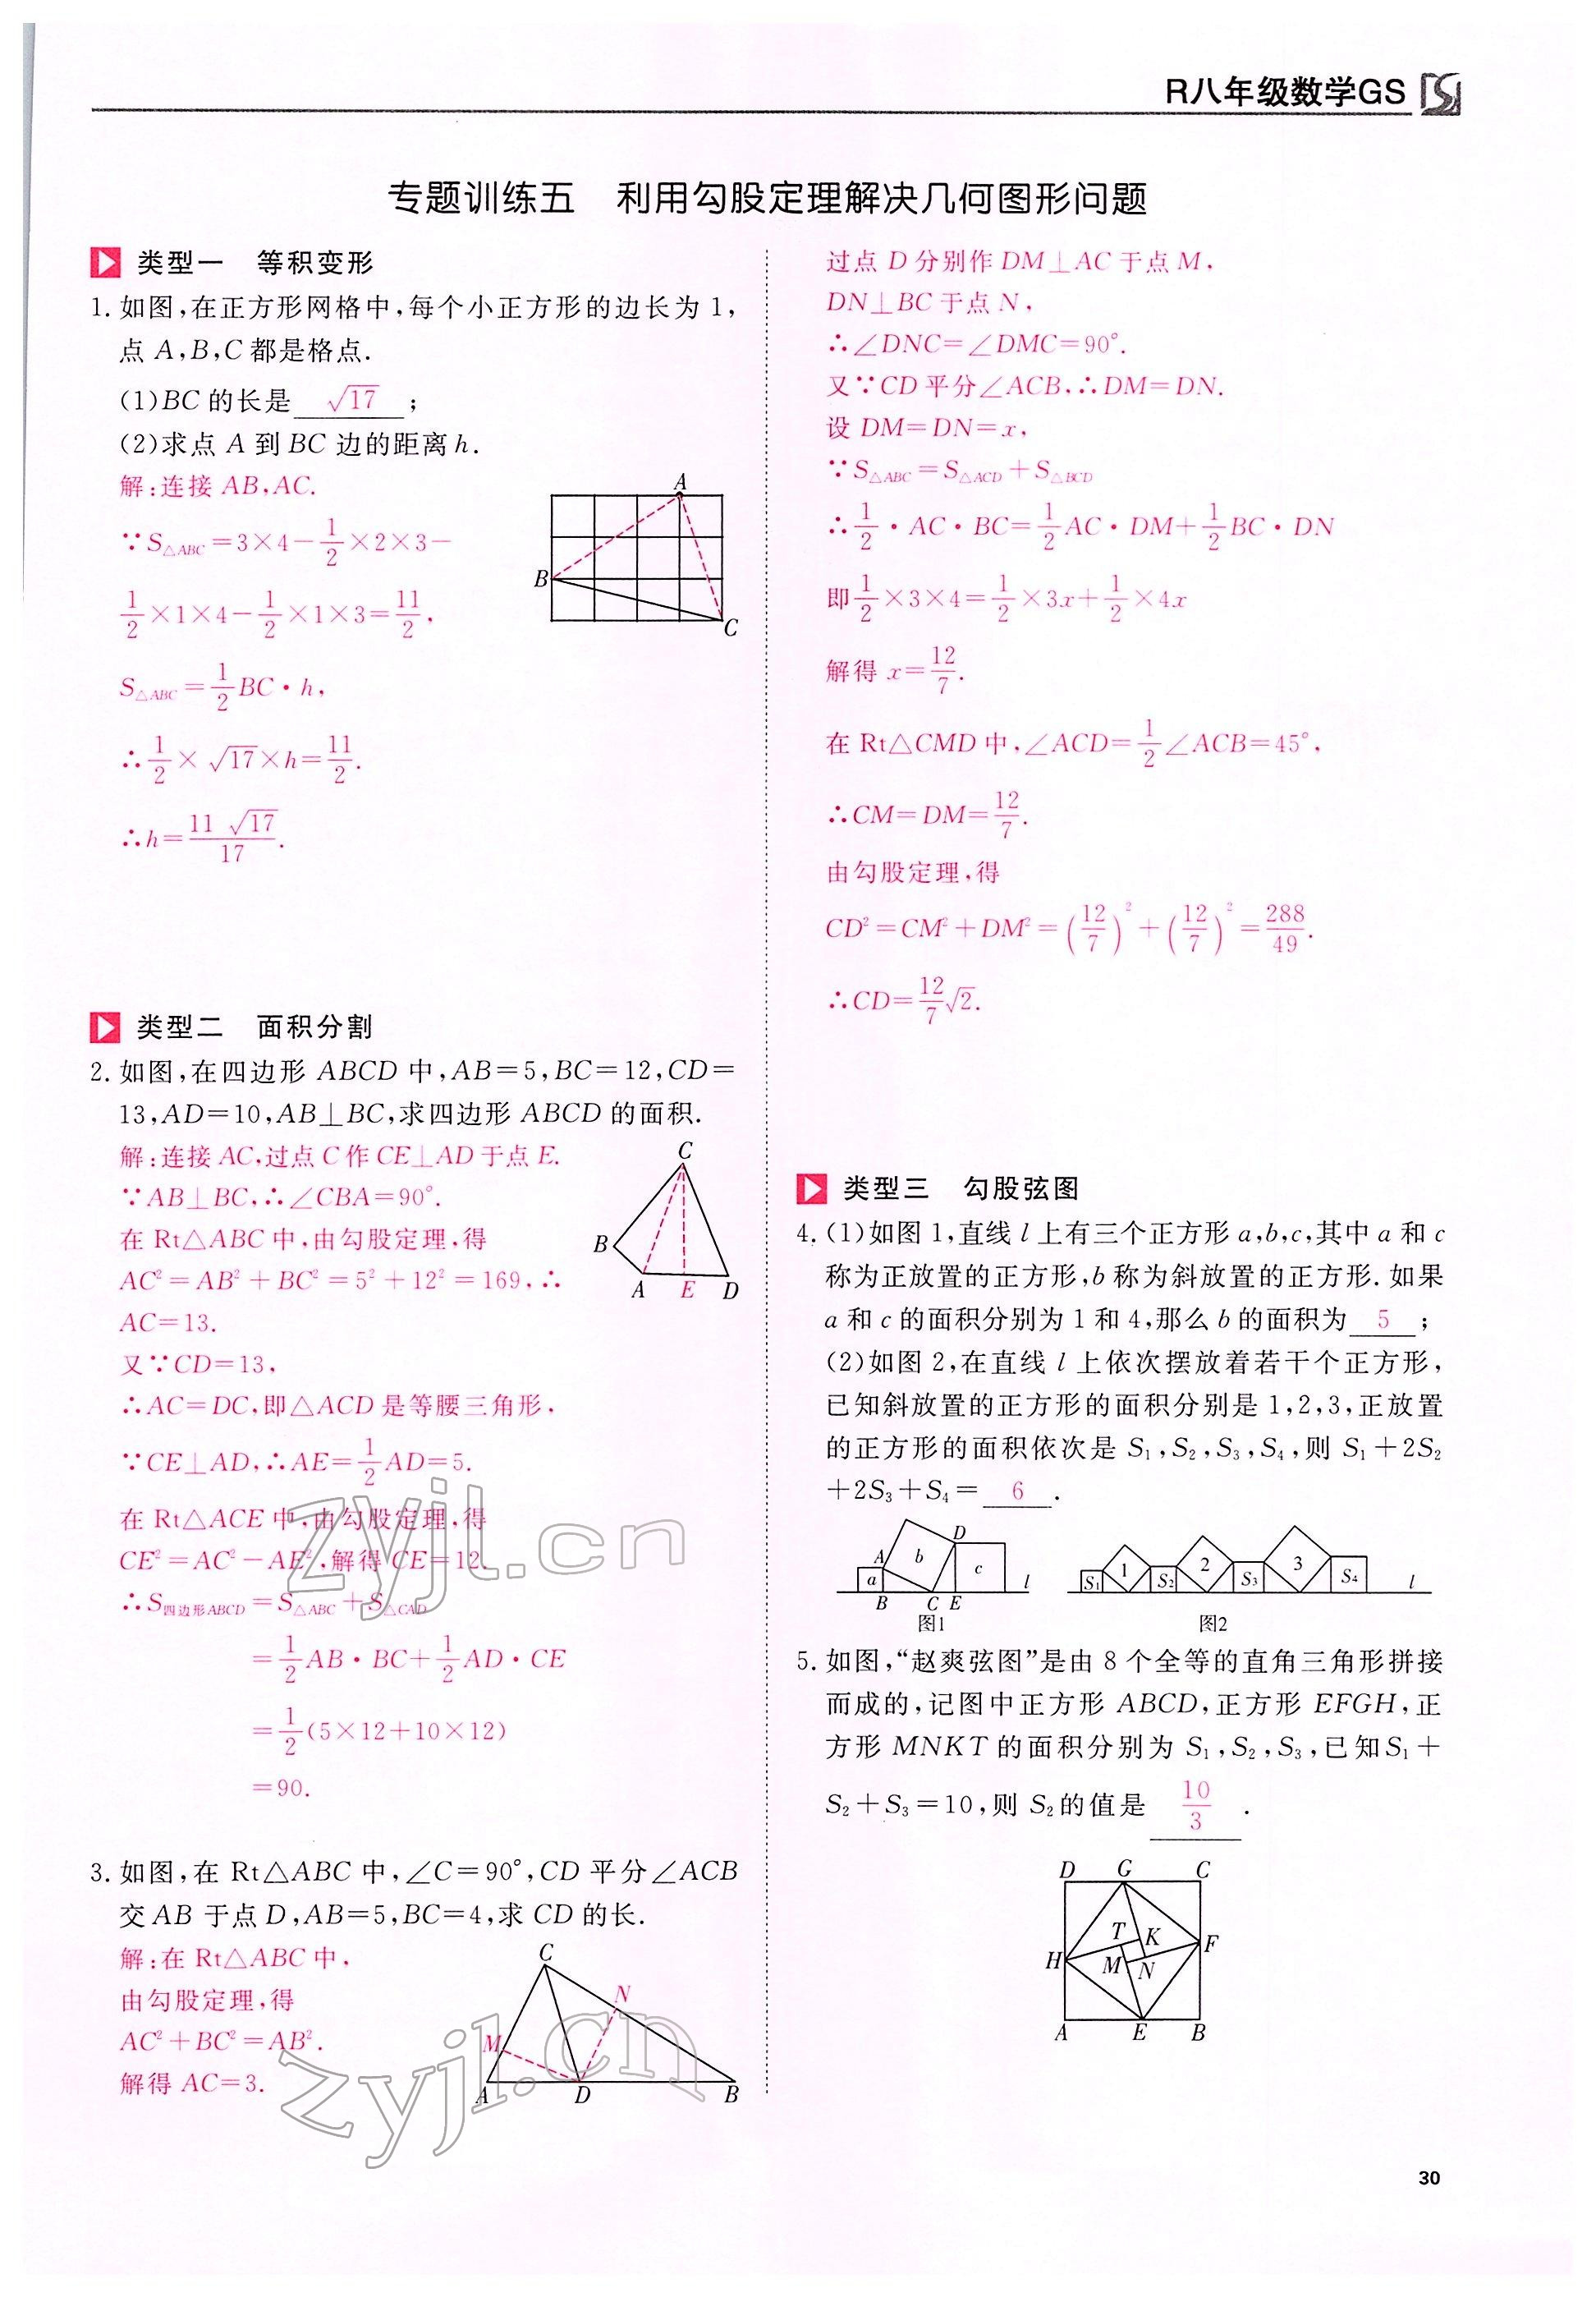 R八年级数学GS
专题训练五 利用勾股定理解决几何图形问题
类型一 等积变形
1. 如图,在正方形网格中,每个小正方形的边长为1,
点A,B,C都是格点.
(1)BC的长是 √17 ;
(2)求点A到BC边的距离h.
解:连接AB,AC.
∵S△ABC=3×4−1/2×2×3−
1/2×1×4−1/2×1×3=11/2,
S△ABC=1/2BC·h,
∴1/2×√17×h=11/2.
∴h=11√17/17.
A
B
C
类型二 面积分割
2. 如图,在四边形ABCD中,AB=5,BC=12,CD=
13,AD=10,AB⊥BC,求四边形ABCD的面积.
解:连接AC,过点C作CE⊥AD于点E.
∵AB⊥BC,∴∠CBA=90°.
在Rt△ABC中,由勾股定理,得
AC²=AB²+BC²=5²+12²=169,∴
AC=13.
又∵CD=13,
∴AC=DC,即△ACD是等腰三角形,
∵CE⊥AD,∴AE=1/2AD=5.
在Rt△ACE中,由勾股定理,得
CE²=AC²−AE²,解得CE=12.
∴S四边形ABCD=S△ABC+S△CAD
=1/2AB·BC+1/2AD·CE
=1/2(5×12+10×12)
=90.
C
B
A E D
3. 如图,在Rt△ABC中,∠C=90°,CD平分∠ACB
交AB于点D,AB=5,BC=4,求CD的长.
解:在Rt△ABC中,
由勾股定理,得
AC²+BC²=AB².
解得AC=3.
C
N
M
A D B
过点D分别作DM⊥AC于点M,
DN⊥BC于点N,
∴∠DNC=∠DMC=90°.
又∵CD平分∠ACB,∴DM=DN.
设DM=DN=x,
∵S△ABC=S△ACD+S△BCD
∴1/2·AC·BC=1/2AC·DM+1/2BC·DN
即1/2×3×4=1/2×3x+1/2×4x
解得x=12/7.
在Rt△CMD中,∠ACD=1/2∠ACB=45°,
∴CM=DM=12/7.
由勾股定理,得
CD²=CM²+DM²=(12/7)²+(12/7)²=288/49.
∴CD=12/7√2.
类型三 勾股弦图
4. (1)如图1,直线l上有三个正方形a,b,c,其中a和c
称为正放置的正方形,b称为斜放置的正方形.如果
a和c的面积分别为1和4,那么b的面积为 5 ;
(2)如图2,在直线l上依次摆放着若干个正方形,
已知斜放置的正方形的面积分别是1,2,3,正放置
的正方形的面积依次是S₁,S₂,S₃,S₄,则S₁+2S₂
+2S₃+S₄= 6 .
A D
a b c l
B C E
图1
S₁ 1 S₂ 2 S₃ 3 S₄ l
图2
5. 如图,“赵爽弦图”是由8个全等的直角三角形拼接
而成的,记图中正方形ABCD,正方形EFGH,正
方形MNKT的面积分别为S₁,S₂,S₃,已知S₁+
S₂+S₃=10,则S₂的值是 10/3 .
D G C
T K F
H M N
A E B
30
zyjl.cn
zyjl.cn